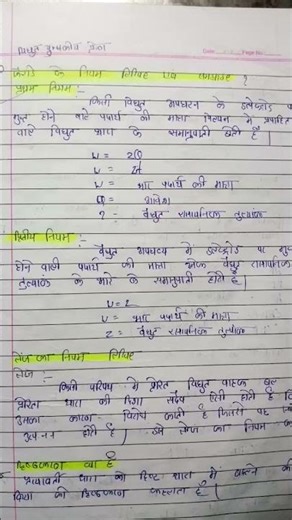 विद्युत चुम्बकीय प्रेरण
फैराडे के नियम लिखिए एवं समझाइए ?
प्रथम नियम :-
किसी विद्युत अपघटन के इलेक्ट्रोड प
मुक्त होने वाले पदार्थ की मात्रा विलयन में प्रवाहित
वाले विद्युत धारा के समानुपाती होती है।
W = ZQ
W = Zit
W = पदार्थ की मात्रा
Q = आवेश
Z = वैद्युत रासायनिक तुल्यांक
द्वितीय नियम :-
वैद्युत अपघटन में इलेक्ट्रोड पर मु
होने वाली पदार्थ की मात्रा उनके वैद्युत रासायनिक
तुल्यांक के भारो के समानुपाती होती है।
W = Z
W = पदार्थ की मात्रा
Z = वैद्युत रासायनिक तुल्यांक
लेंज का नियम लिखिए
लेंज :-
किसी परिपथ में प्रेरित विद्युत वाहक बल
प्रेरित धारा की दिशा सदैव ऐसी होती है कि
उसका कारण विरोध करती है जिससे वह
उत्पन्न होती है। इसे लेंज का नियम क
दिष्टकरण क्या है
प्रत्यावर्ती धारा को दिष्ट धारा में बदलने की
क्रिया को दिष्टकरण कहलाता है।